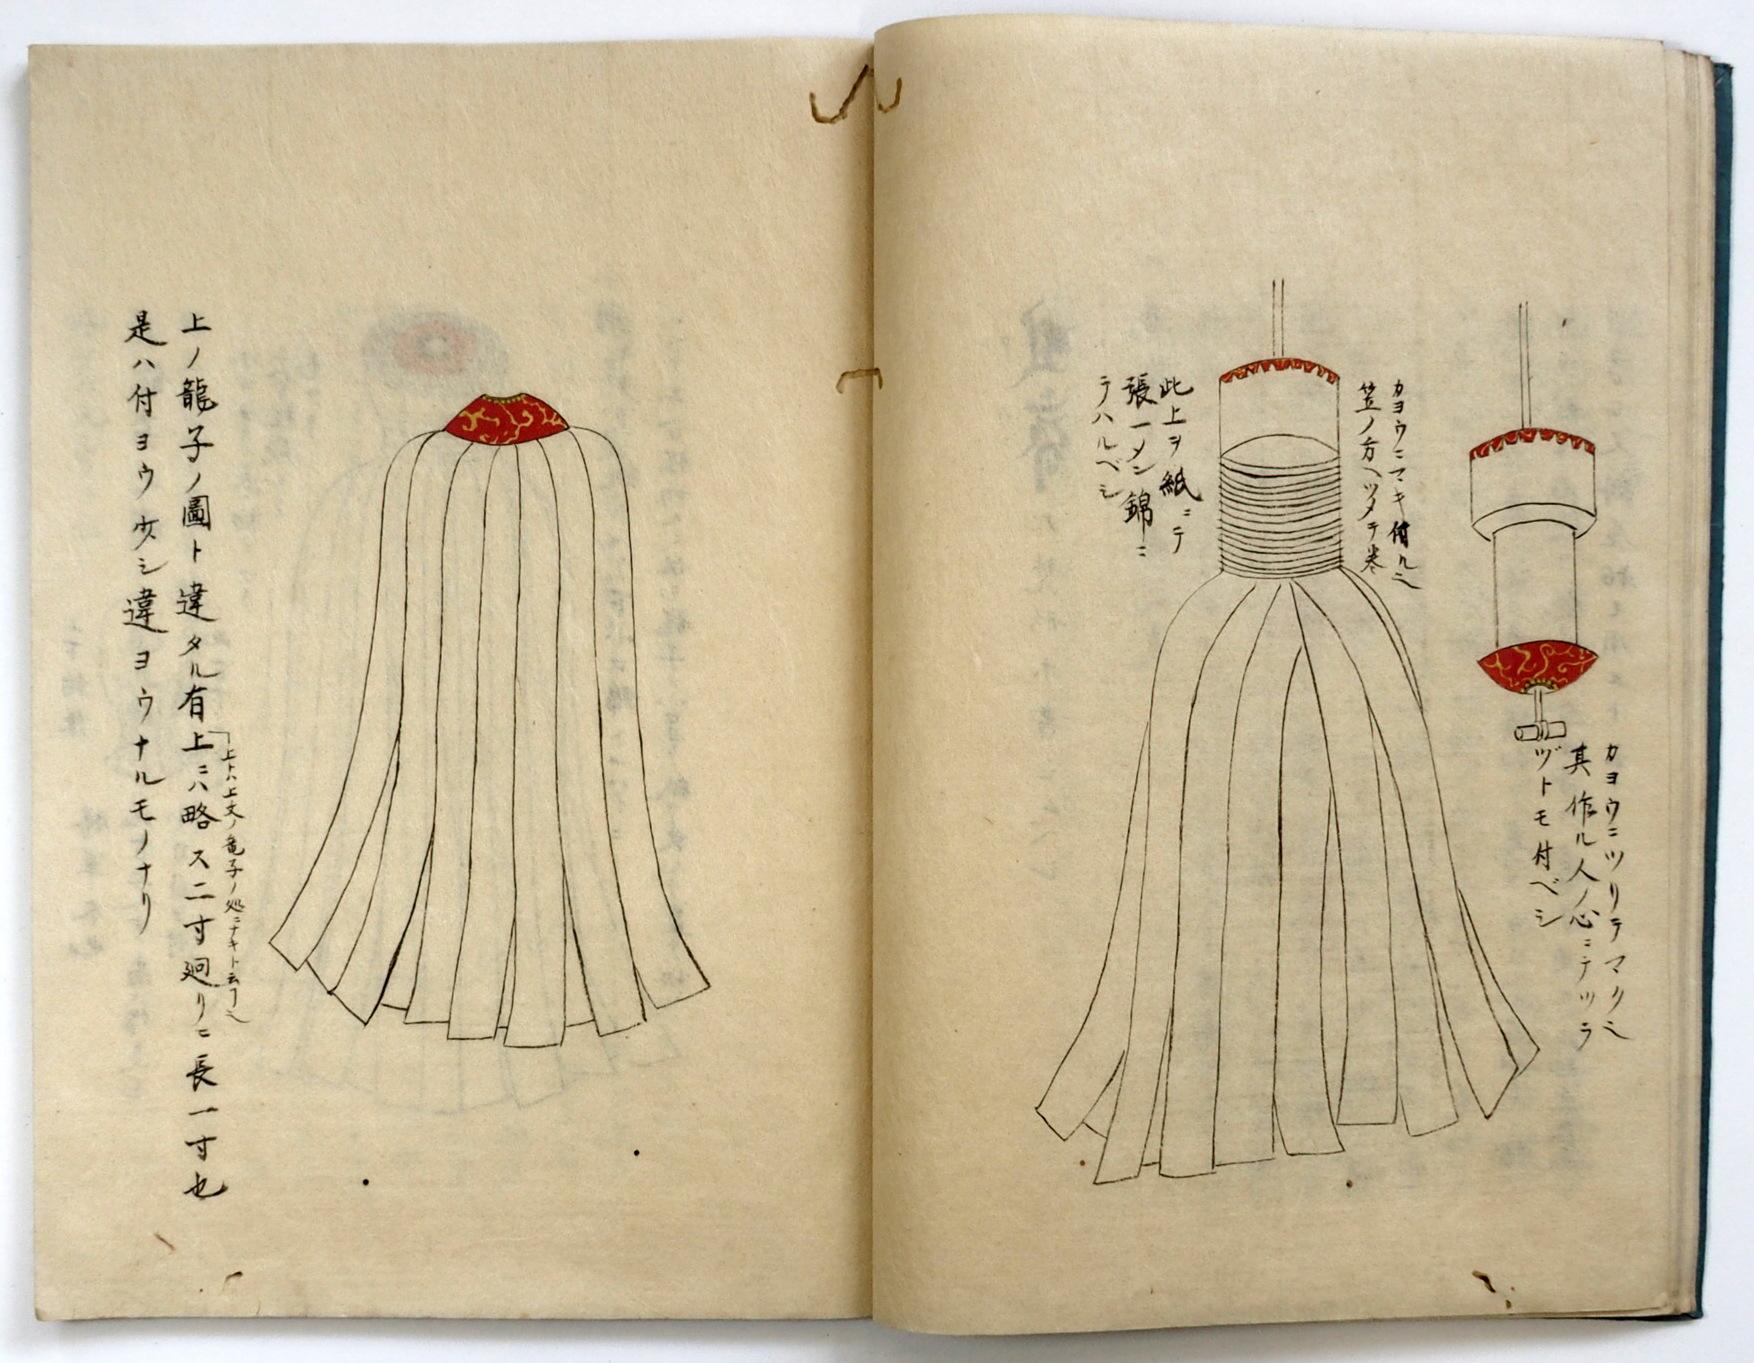 カヨウニツリテマク〆
其作ル人ノ心ニテツラ
ヅトモ付ベシ
カヨウニマキ付ル〆
笠ノ方ヘツメテ巻
此上ヲ紙ニテ
張一メン錦ニ
テハルベシ
上ノ龍子ノ圖ト違タル有上ニハ略ス二寸廻リニ長一寸也
上トハ上文ノ竜子ノ処ニナキト云フ
是ハ付ヨウ少シ違ヨウナルモノナリ